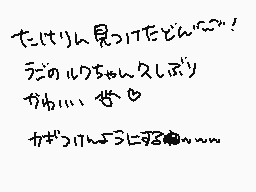 たけりん見つけたどん〜〜!
うごのルクちゃん久しぶり
かわいい ♡
カギつけんようにするwww